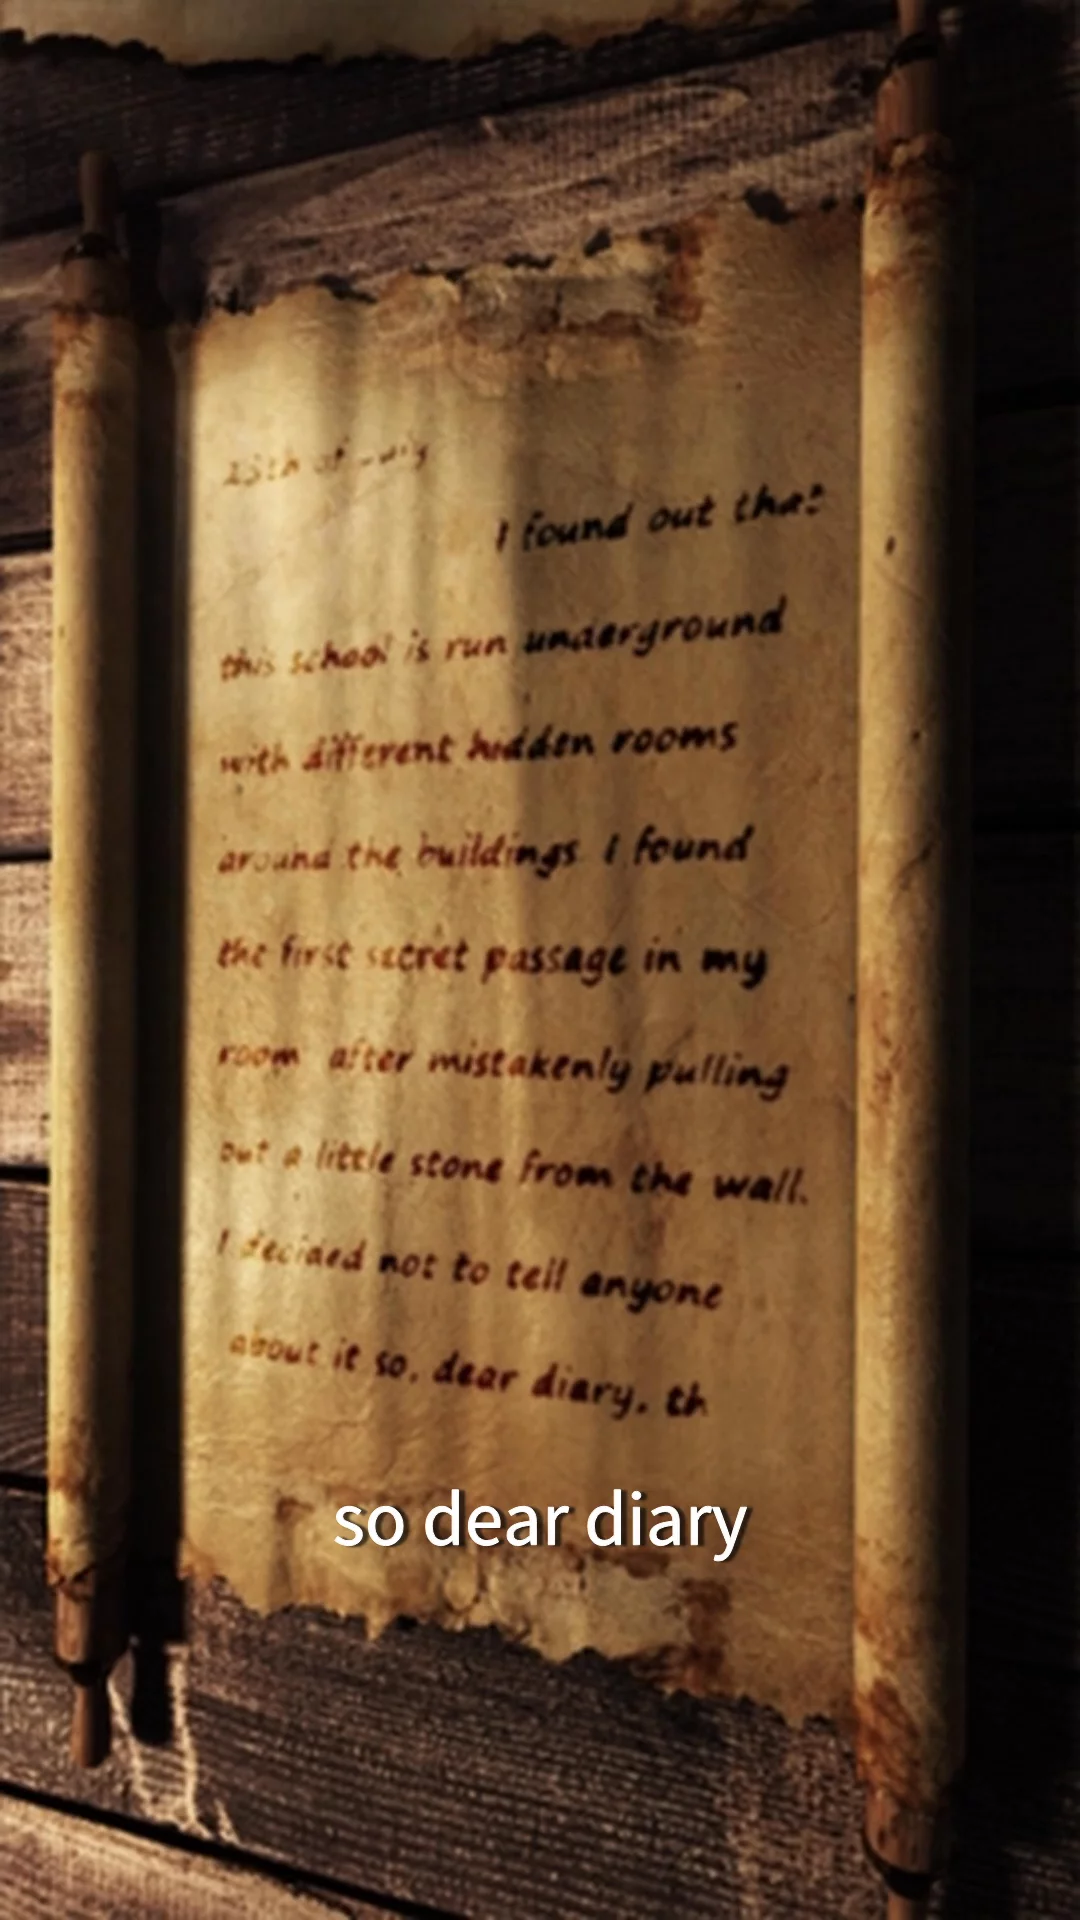 15th of July
I found out that
this school is run underground
with different hidden rooms
around the buildings. I found
the first secret passage in my
room after mistakenly pulling
out a little stone from the wall.
I decided not to tell anyone
about it so, dear diary, th
so dear diary